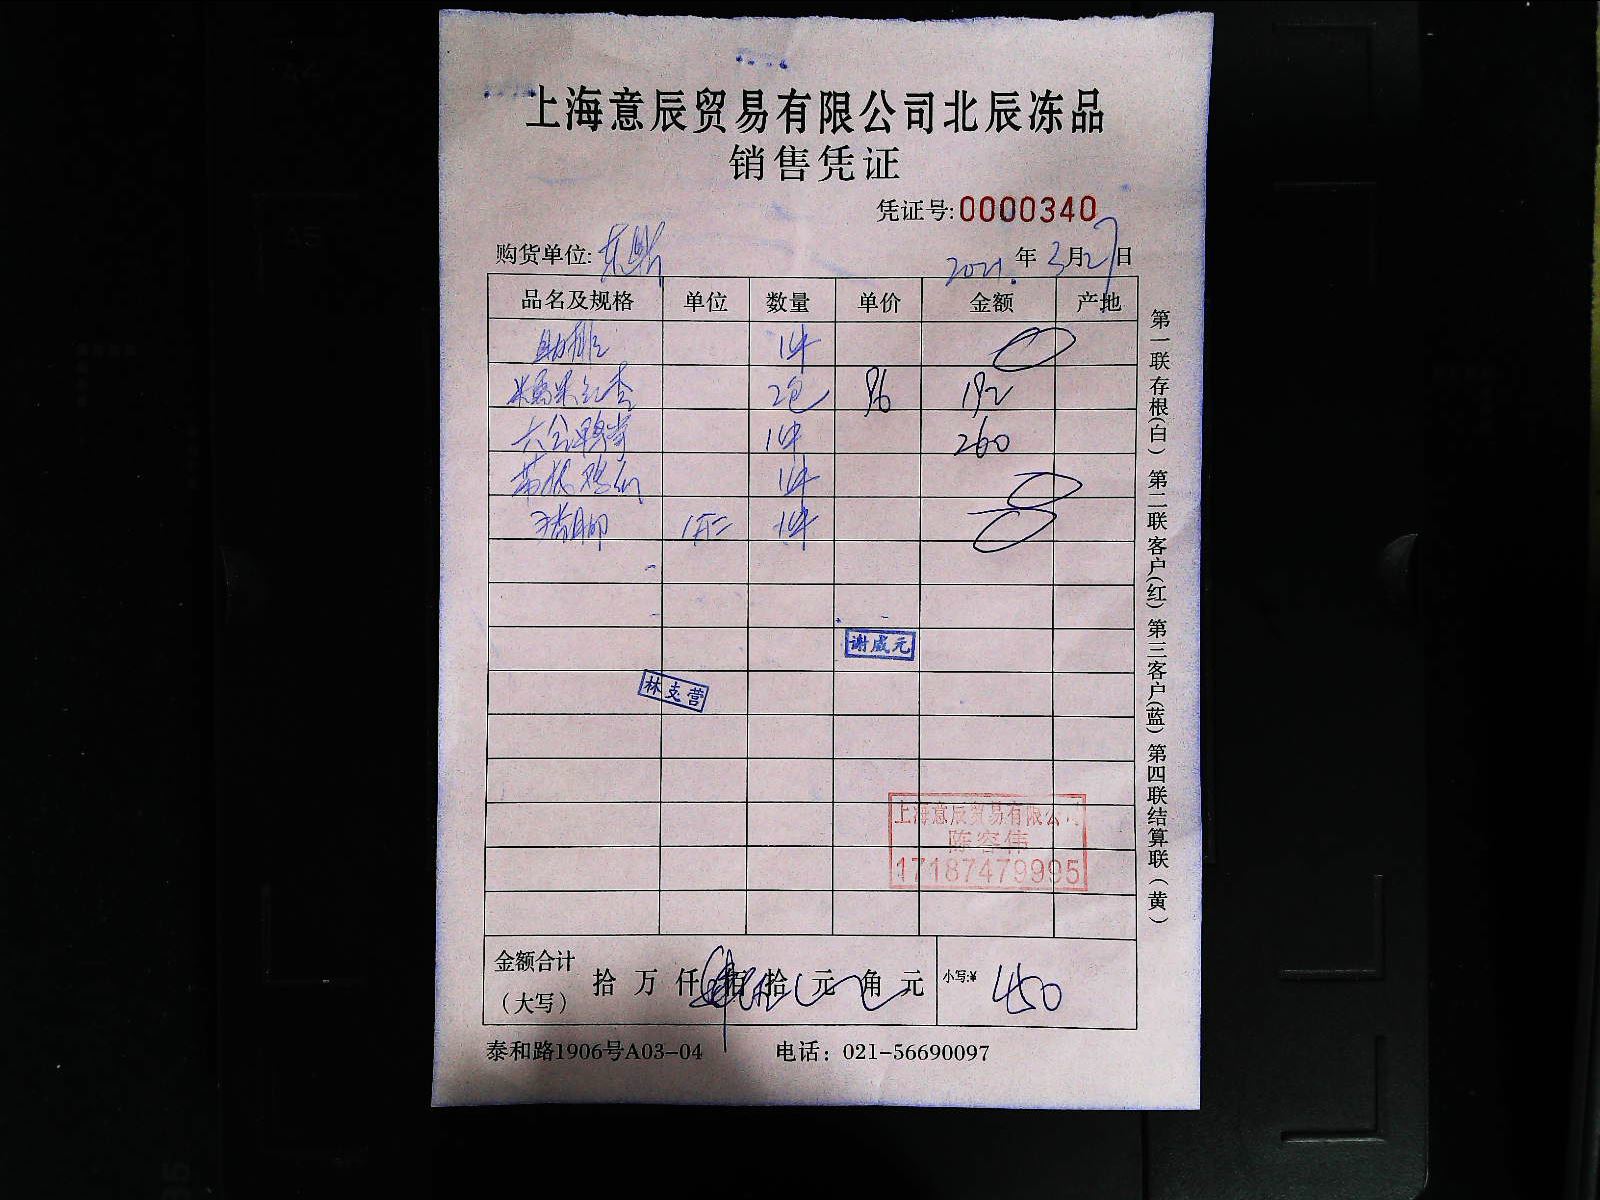 上海意辰贸易有限公司北辰冻品
销售凭证
凭证号:0000340
购货单位: 2021.年3月27日
品名及规格 单位 数量 单价 金额 产地
助排 1件
2包 96 192
1件 260
1件
猪脚 1件
谢成元
林支营
上海意辰贸易有限公司
陈容伟
17187479995
金额合计
(大写)
拾万仟佰拾元角元
小写:¥ 450
泰和路1906号A03-04 电话：021-56690097
第一联存根(白) 第二联客户(红) 第三客户(蓝) 第四联结算联(黄)